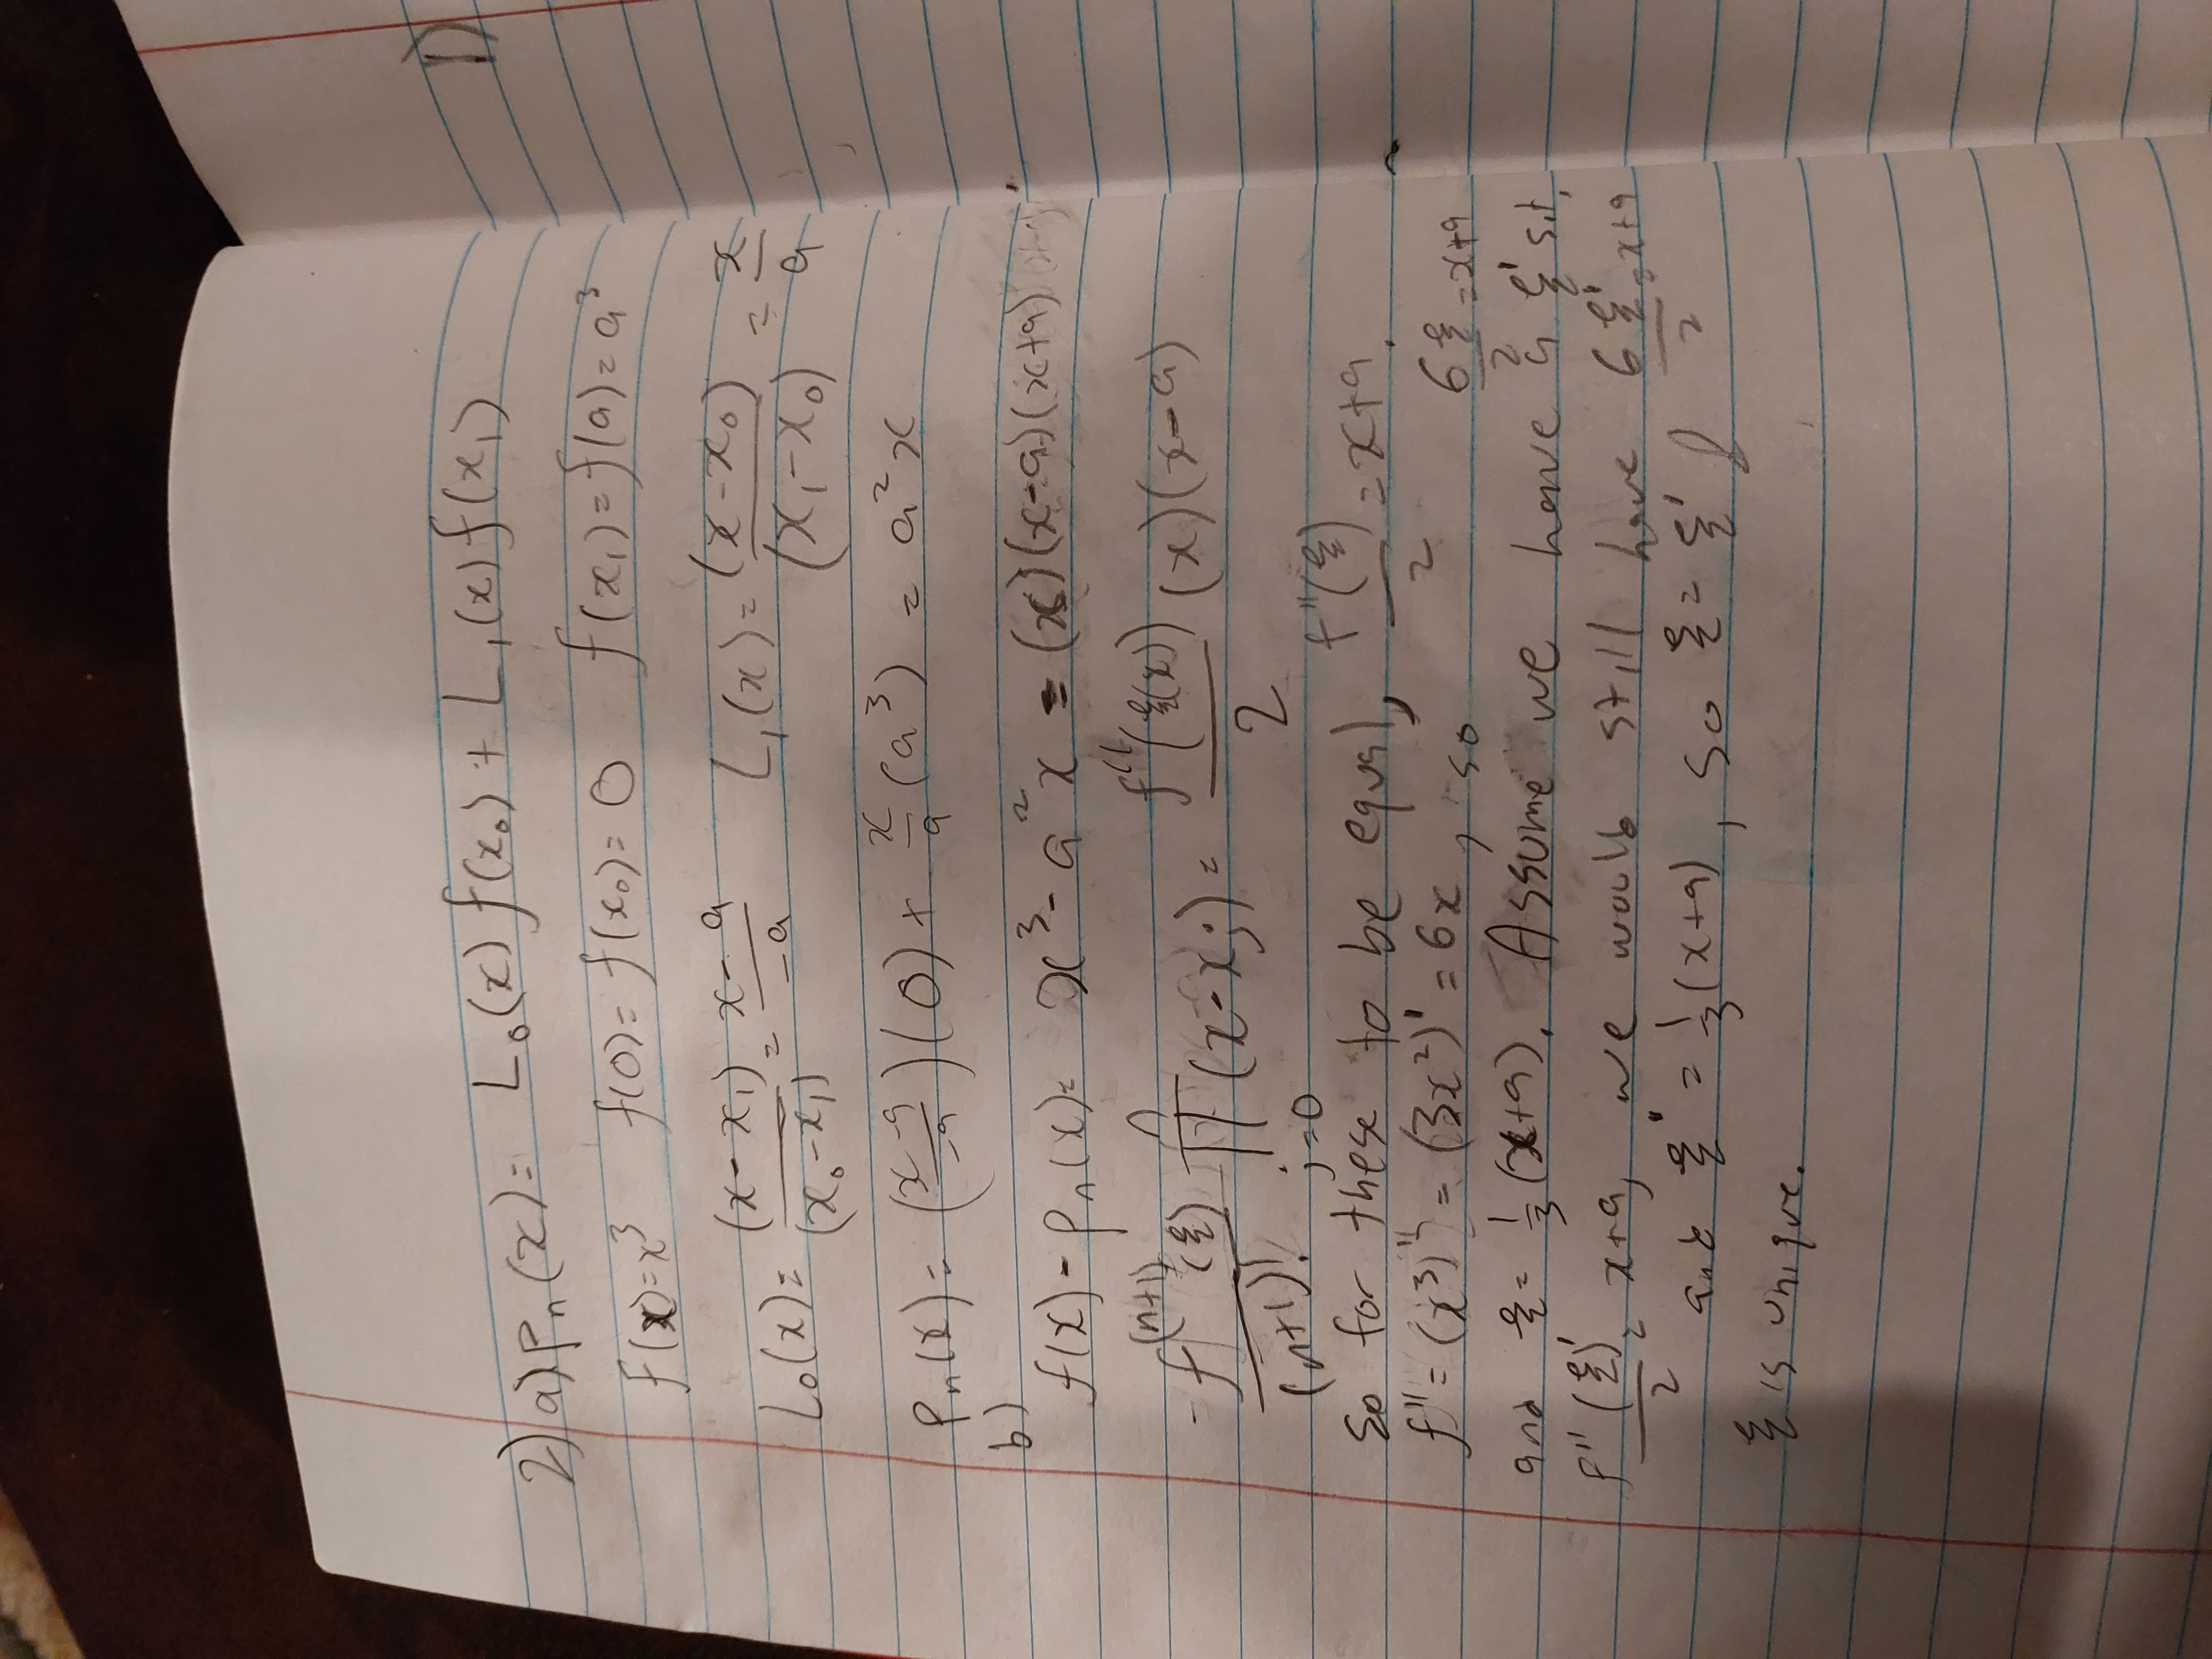 2) a) Pn(x) = L₀(x) f(x₀) + L₁(x) f(x₁)
f(x) = x³ f(0) = f(x₀) = 0 f(x₁) = f(a) = a³
L₀(x) = (x - x₁)/(x₀ - x₁) = (x - a)/(-a) L₁(x) = (x - x₀)/(x₁ - x₀) = x/a
Pn(x) = ((x - a)/(-a))(0) + x/a (a³) = a²x
b)
f(x) - Pn(x) = x³ - a²x = (x)(x - a)(x + a)
- f^(n+1)(ξ)/(n+1)! ∏_{j=0}^{n} (x - xj) = f''(ξ(x))/2 (x)(x - a)
So for these to be equal, f''(ξ)/2 = x + a.
f'' = (x³)'' = (3x²)' = 6x, so 6ξ/2 = x + a
and ξ = 1/3 (x + a). Assume we have a ξ' s.t.
f''(ξ)'/2 = x + a, we would still have 6ξ'/2 = x + a
and ξ' = 1/3 (x + a), so ξ = ξ'
ξ is unique.
1)